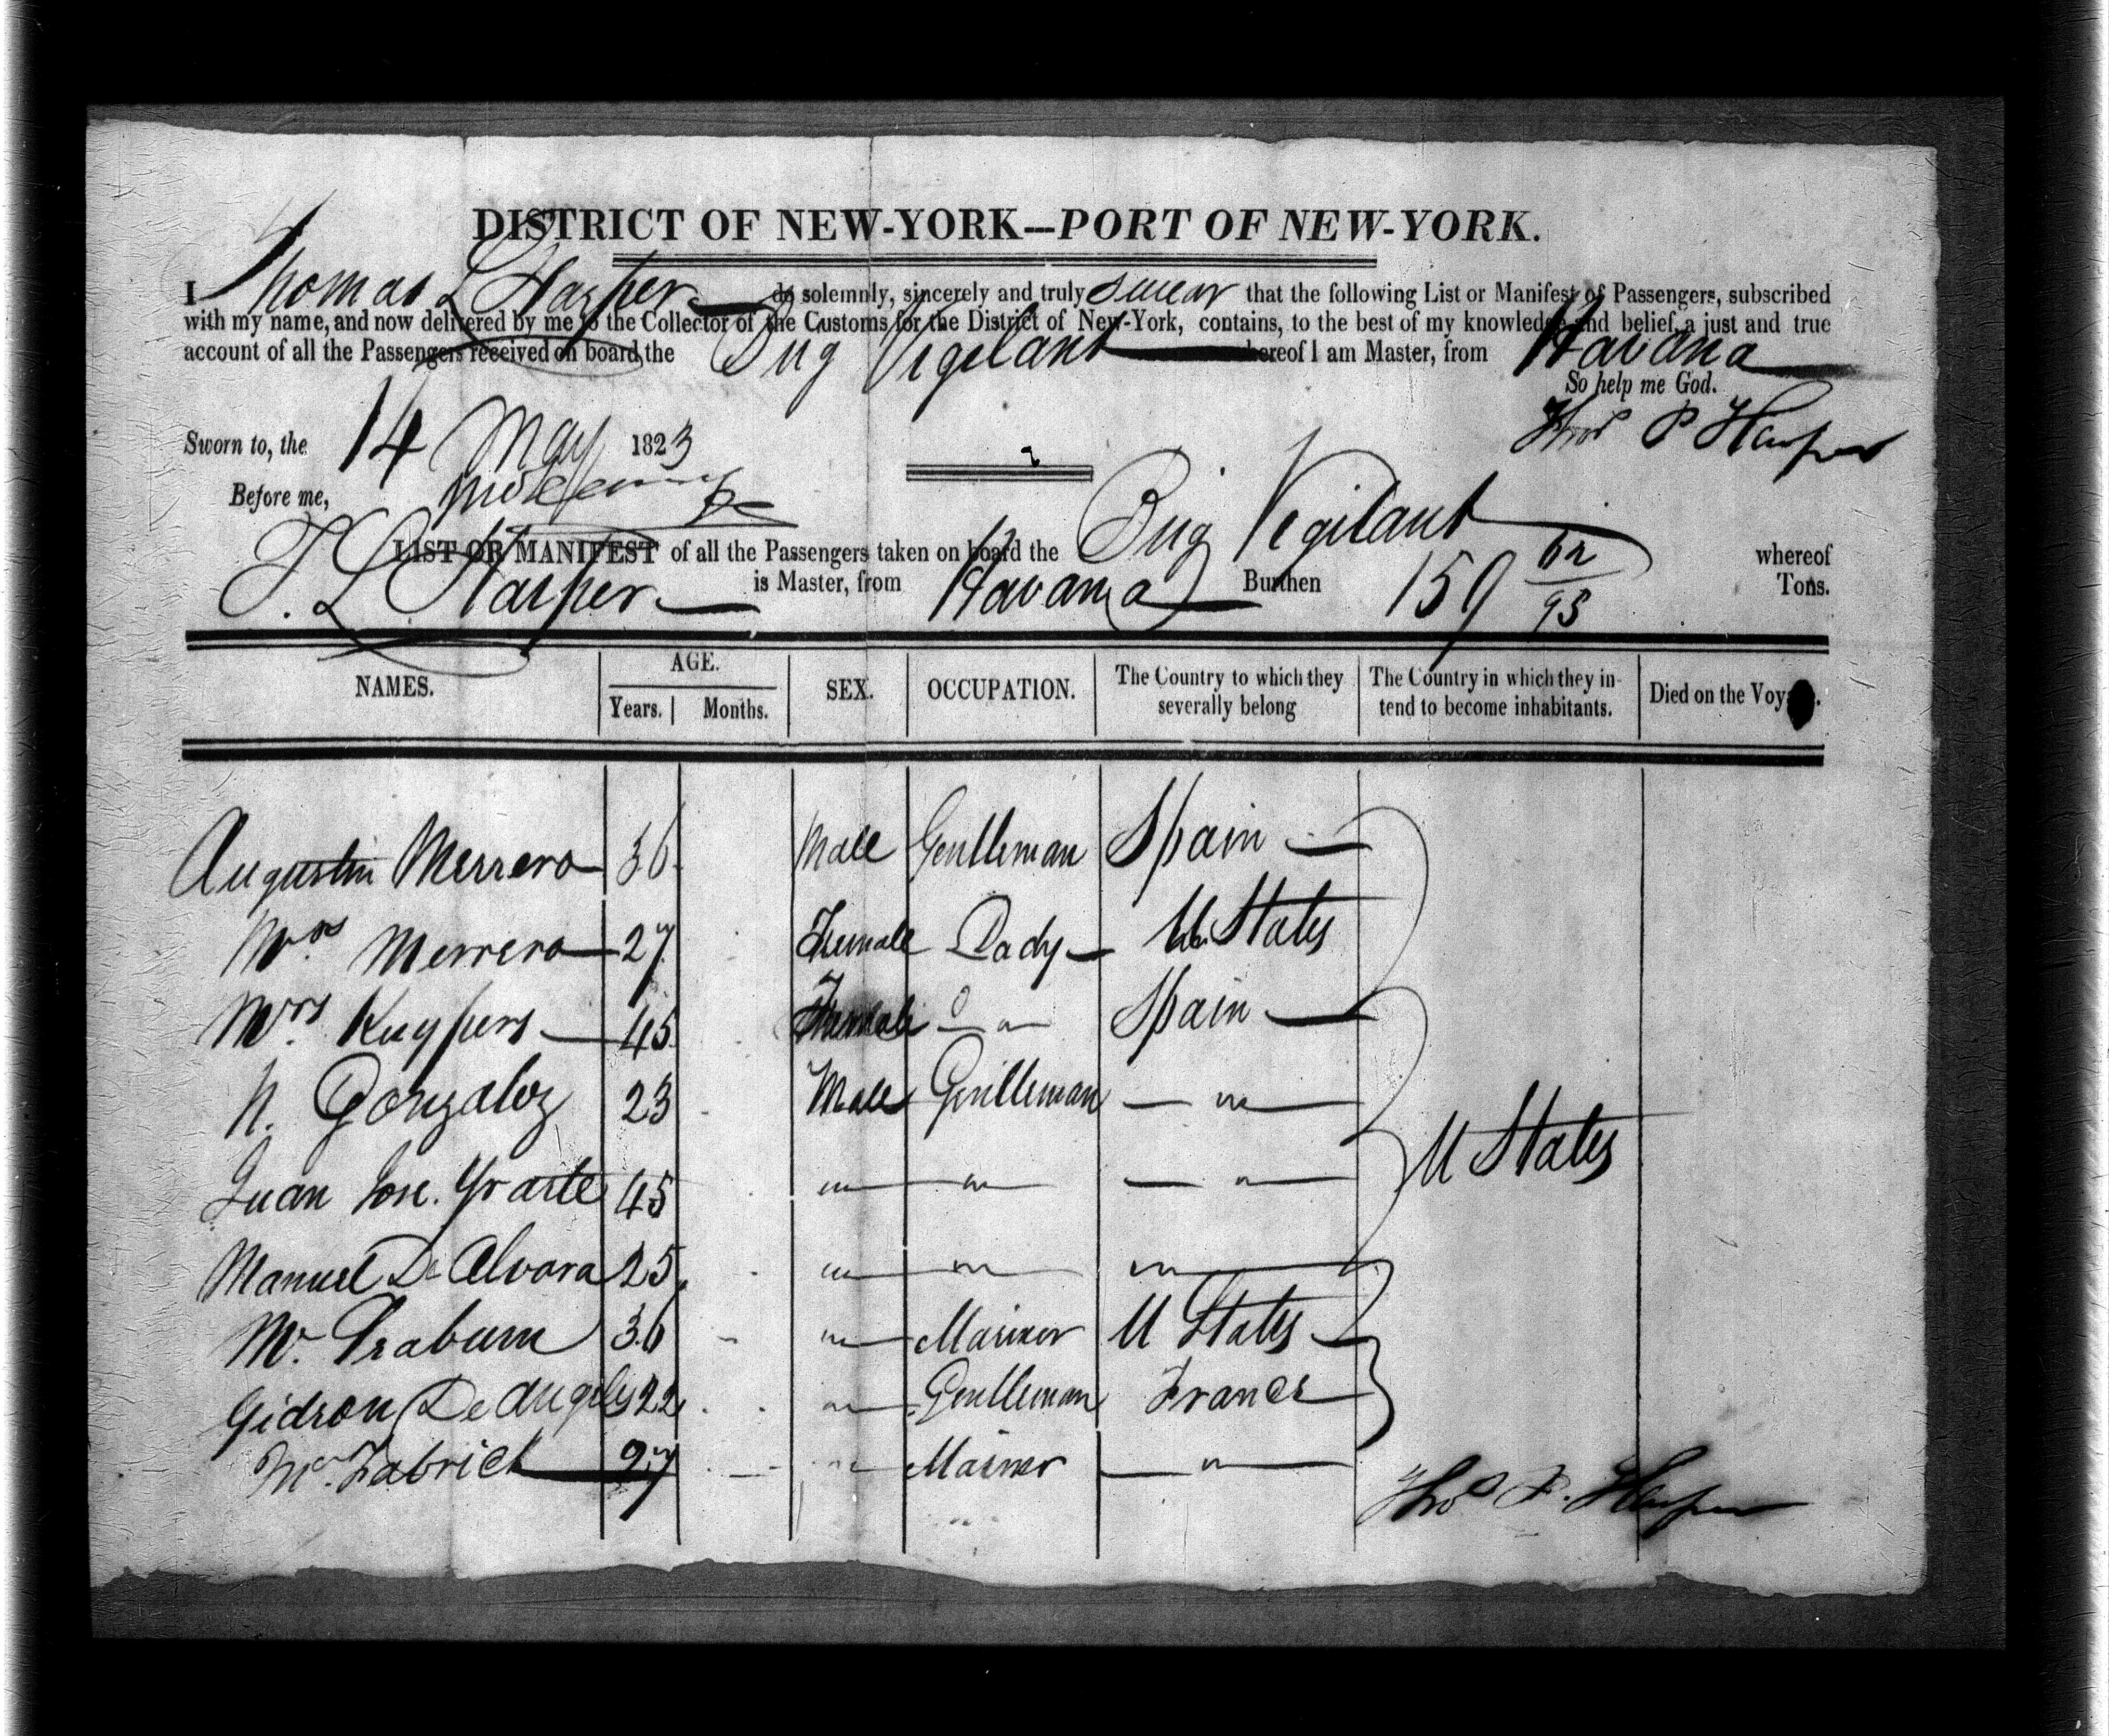 DISTRICT OF NEW-YORK---PORT OF NEW-YORK.
I Thomas L Harper do solemnly, sincerely and truly swear that the following List or Manifest of Passengers, subscribed
with my name, and now delivered by me to the Collector of the Customs for the District of New-York, contains, to the best of my knowledge and belief, a just and true
account of all the Passengers received on board the Brig Vigilant whereof I am Master, from Havana
So help me God.
Thos P Harper
Sworn to, the 14 May 1823
Before me,
LIST OR MANIFEST of all the Passengers taken on board the Brig Vigilant whereof
T. L Harper is Master, from Havana Burthen 159 62/95 Tons.
NAMES. AGE. Years. Months. SEX. OCCUPATION. The Country to which they severally belong The Country in which they intend to become inhabitants. Died on the Voy
Augustin Merrero 36 Male Gentleman Spain
Mrs Merrero 27 Female Lady U States
Mrs Kuypers 45 Female Spain
N. Gonzalez 23 Male Gentleman
Juan Jose 45 U States
Manuel De Alvora 25
Mr. 36 Mariner U States
Gideon De Angelys 22 Gentleman France
Mr. Fabrick 27 Mariner
Thos P. Harper